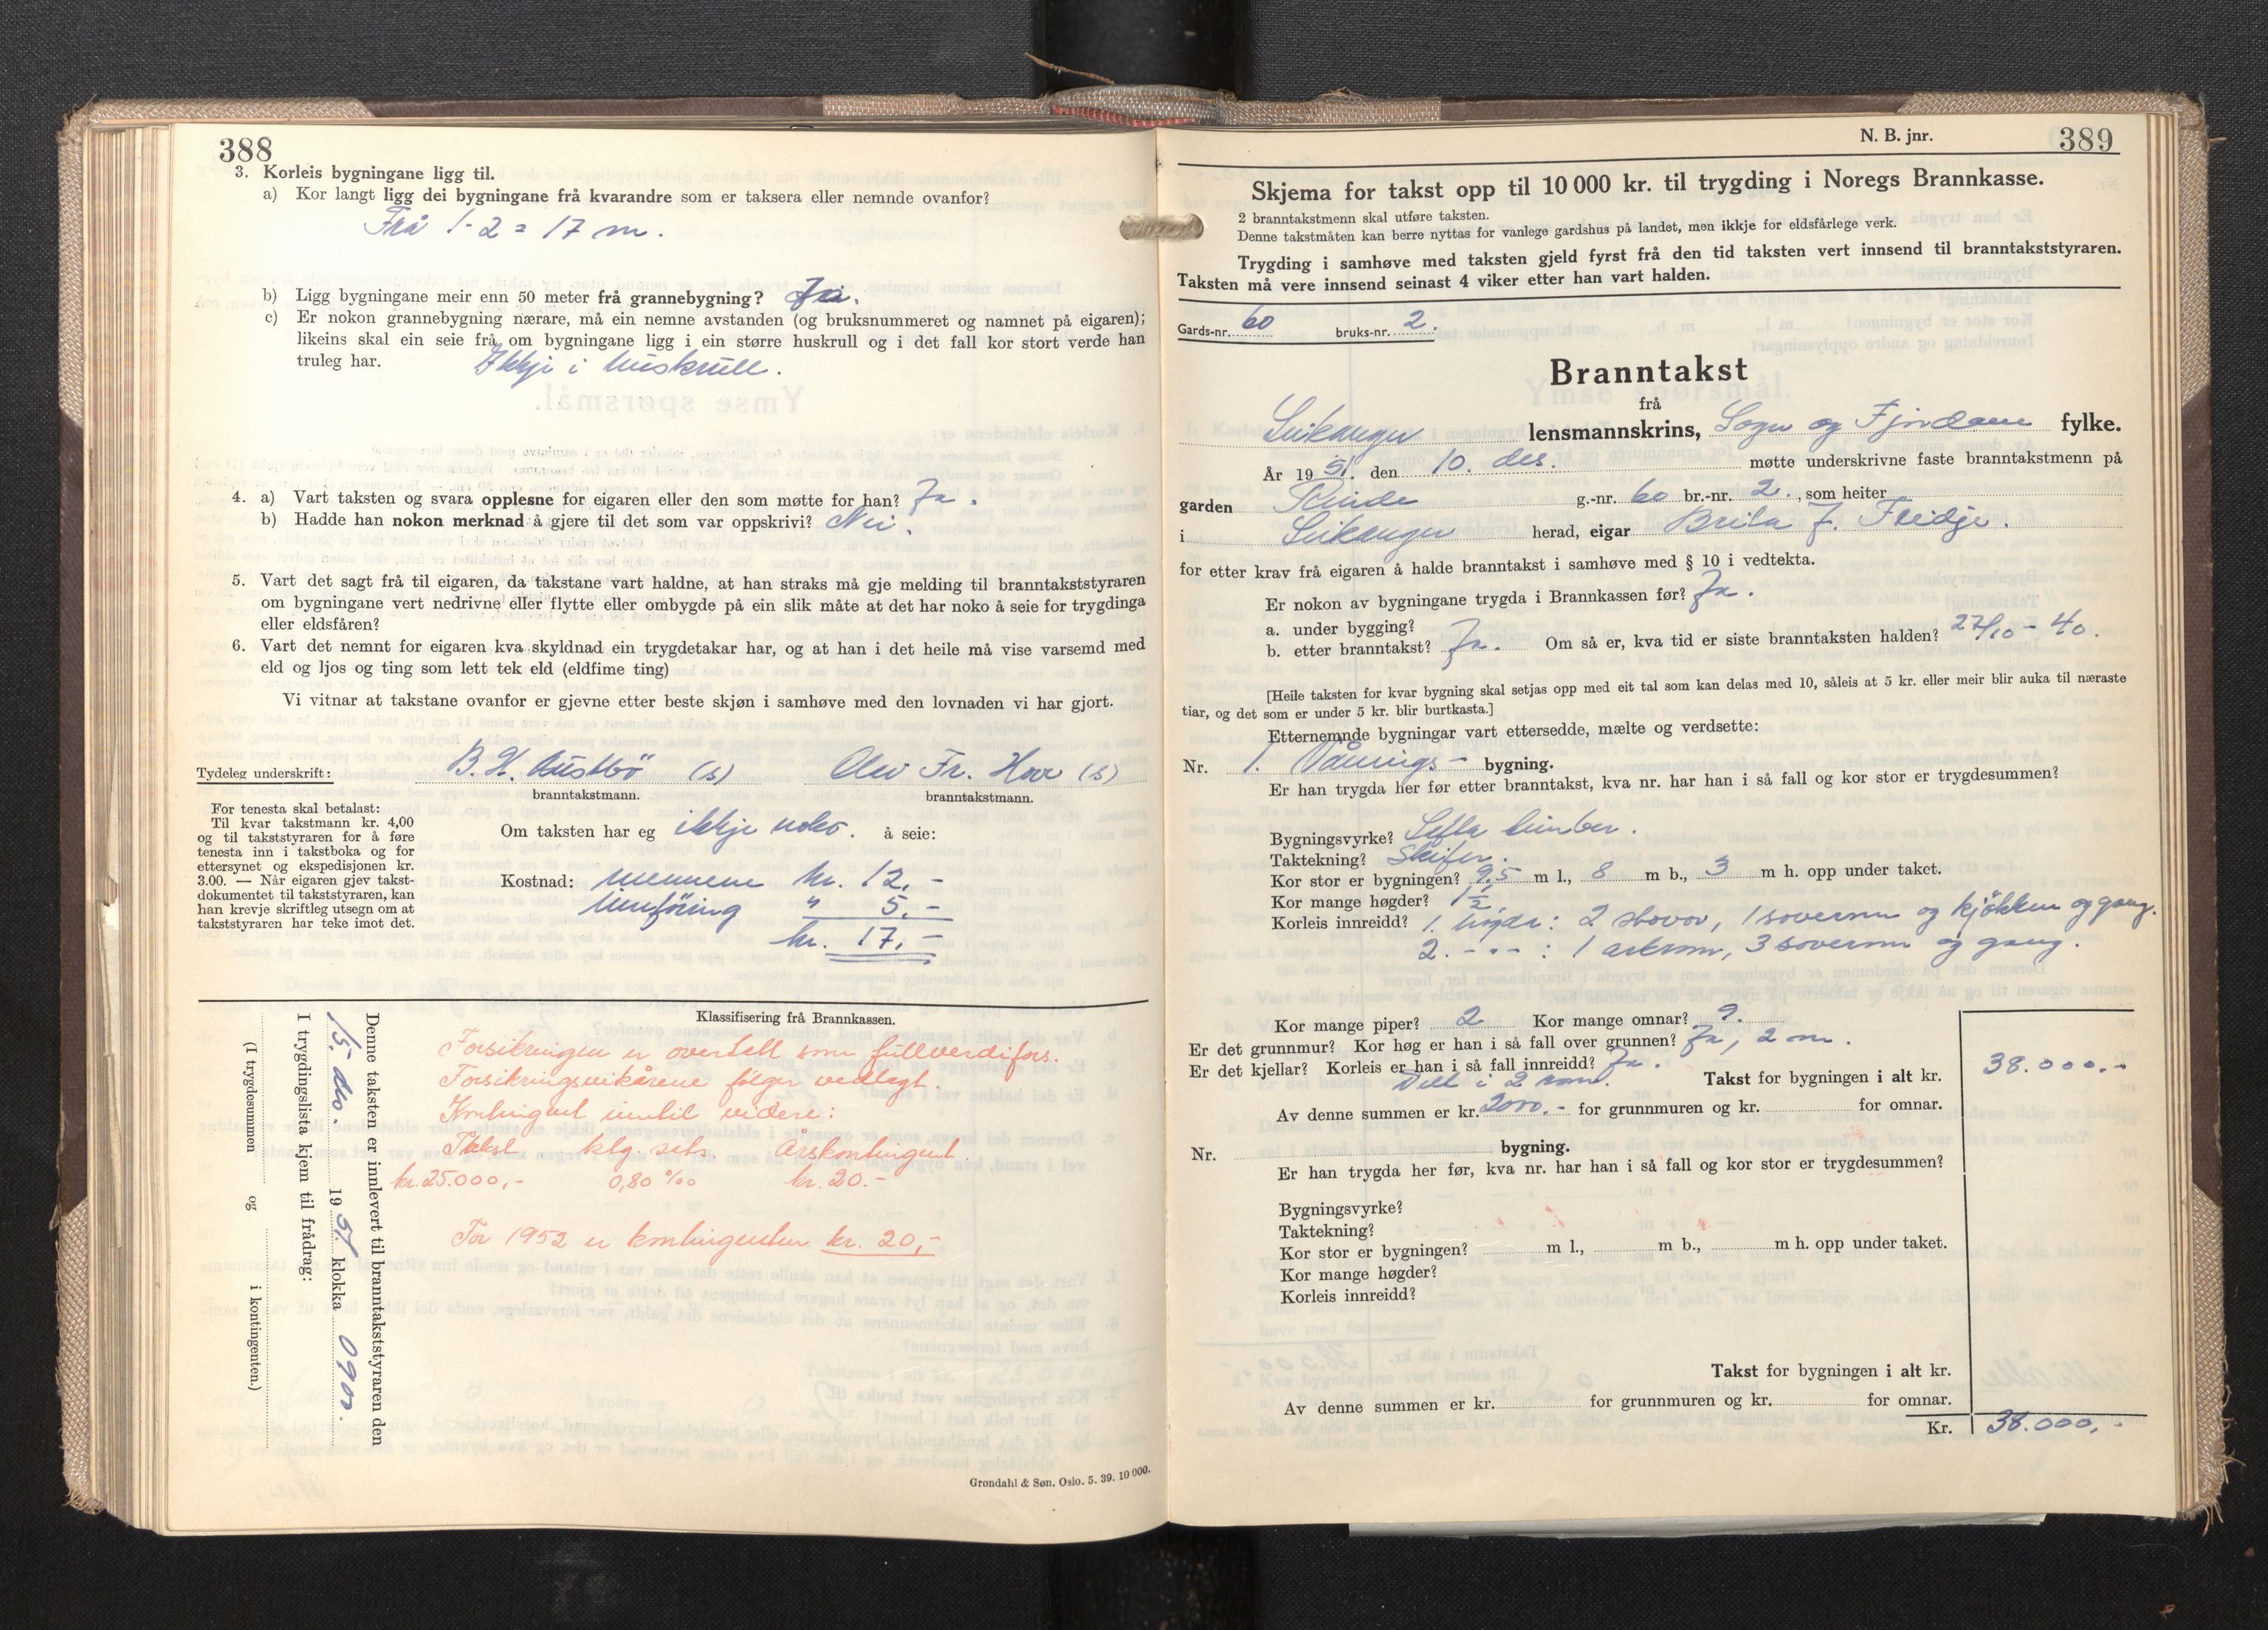 388
3. Korleis bygningane ligg til.
a) Kor langt ligg dei bygningane frå kvarandre som er taksera eller nemnde ovanfor?
Frå 1-2 = 17 m.
b) Ligg bygningane meir enn 50 meter frå grannebygning? Ja.
c) Er nokon grannebygning nærare, må ein nemne avstanden (og bruksnummeret og namnet på eigaren);
likeins skal ein seie frå om bygningane ligg i ein større huskrull og i det fall kor stort verde han
truleg har. Ikkje i huskrull.
4. a) Vart taksten og svara opplesne for eigaren eller den som møtte for han? Ja.
b) Hadde han nokon merknad å gjere til det som var oppskrivi? Nei.
5. Vart det sagt frå til eigaren, da takstane vart haldne, at han straks må gje melding til branntakststyraren
om bygningane vert nedrivne eller flytte eller ombygde på ein slik måte at det har noko å seie for trygdinga
eller eldsfåren?
6. Vart det nemnt for eigaren kva skyldnad ein trygdetakar har, og at han i det heile må vise varsemd med
eld og ljos og ting som lett tek eld (eldfime ting)
Vi vitnar at takstane ovanfor er gjevne etter beste skjøn i samhøve med den lovnaden vi har gjort.
Tydeleg underskrift: B. H. Austbö (s) Olav Fr. Hove (s)
branntakstmann. branntakstmann.
For tenesta skal betalast:
Til kvar takstmann kr. 4,00
og til takststyraren for å føre
tenesta inn i takstboka og for
ettersynet og ekspedisjonen kr.
3.00. — Når eigaren gjev takst-
dokumentet til takststyraren, kan
han krevje skriftleg utsegn om at
takststyraren har teke imot det.
Om taksten har eg ikkje noko. å seie:
Kostnad: mennene kr. 12,-
Innföring " 5.-
kr. 17,-
Klassifisering frå Brannkassen.
Forsikringen er overtatt som fullverdifors.
Forsikringsvilkårene følger vedlagt.
Kontingent inntil videre:
Takst ktg. sats. Årskontingent.
kr. 25.000,- 0,80 ‰ kr. 20.-
For 1952 er kontingenten kr. 20,-
Denne taksten er innlevert til branntakststyraren den
15. des. 1951 klokka 0900.
I trygdingslista kjem til frådrag:
(I trygdesummen og i kontingenten.)
Grøndahl & Søn. Oslo. 5. 39. 10 000.
N. B. jnr. 389
Skjema for takst opp til 10 000 kr. til trygding i Noregs Brannkasse.
2 branntakstmenn skal utføre taksten.
Denne takstmåten kan berre nyttas for vanlege gardshus på landet, men ikkje for eldsfårlege verk.
Trygding i samhøve med taksten gjeld fyrst frå den tid taksten vert innsend til branntakststyraren.
Taksten må vere innsend seinast 4 viker etter han vart halden.
Gards-nr. 60 bruks-nr. 2.
Branntakst
frå
Leikanger lensmannskrins, Sogn og Fjordane fylke.
År 1951. den 10. des. møtte underskrivne faste branntakstmenn på
garden Rinde g.-nr. 60 br.-nr. 2., som heiter
i Leikanger herad, eigar Brita J. Fleidje.
for etter krav frå eigaren å halde branntakst i samhøve med § 10 i vedtekta.
Er nokon av bygningane trygda i Brannkassen før? Ja.
a. under bygging?
b. etter branntakst? Ja. Om så er, kva tid er siste branntaksten halden? 27/10 - 40.
[Heile taksten for kvar bygning skal setjas opp med eit tal som kan delas med 10, såleis at 5 kr. eller meir blir auka til næraste
tiar, og det som er under 5 kr. blir burtkasta.]
Etternemnde bygningar vart ettersedde, mælte og verdsette:
Nr. 1. Vånings- bygning.
Er han trygda her før etter branntakst, kva nr. har han i så fall og kor stor er trygdesummen?
Bygningsvyrke? Lefta timber.
Taktekning? Skifer.
Kor stor er bygningen? 9,5 m l., 8 m b., 3 m h. opp under taket.
Kor mange høgder? 1½
Korleis innreidd? 1. högde: 2 stovor, 1 soverom og kjökken og gang.
2. - - - : 1 arkrom, 3 soverom og gang.
Kor mange piper? 2 Kor mange omnar? 9.
Er det grunnmur? Kor høg er han i så fall over grunnen? Ja, 2 m.
Er det kjellar? Korleis er han i så fall innreidd? Ja.
Delt i 2 rom. Takst for bygningen i alt kr. 38.000,-
Av denne summen er kr. 2000.- for grunnmuren og kr. for omnar.
Nr. bygning.
Er han trygda her før, kva nr. har han i så fall og kor stor er trygdesummen?
Bygningsvyrke?
Taktekning?
Kor stor er bygningen? m l., m b., m h. opp under taket.
Kor mange høgder?
Korleis innreidd?
Takst for bygningen i alt kr.
Av denne summen er kr. for grunnmuren og kr. for omnar.
Kr. 38.000,-